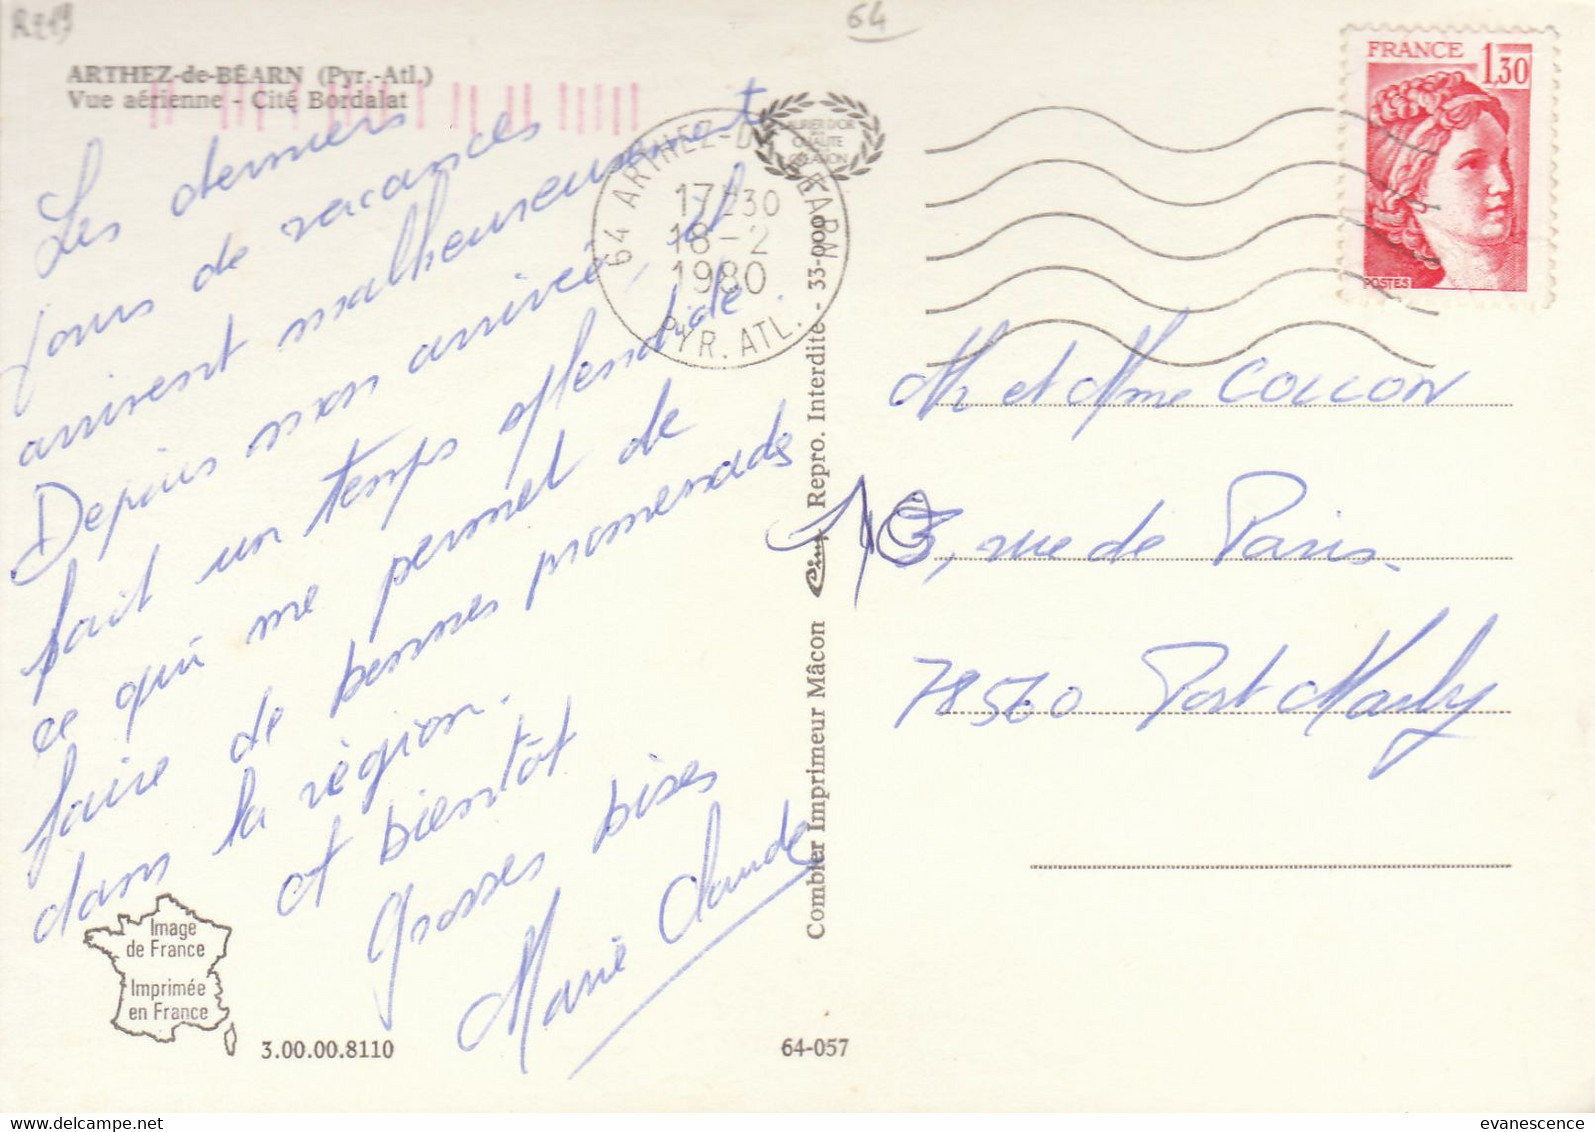 R219
64
ARTHEZ-de-BÉARN (Pyr.-Atl.)
Vue aérienne - Cité Bordalat
Les derniers
jours de vacances
arrivent malheureusement
Depuis mon arrivée, il
fait un temps splendide
ce qui me permet de
faire de bonnes promenades
dans la région.
et bientôt
Grosses bises
Marie Claude
64 ARTHEZ-DE-BEARN
17H30
18-2
1980
PYR. ATL.
LAURIER D'OR
QUALITE
CREATION
FRANCE 1,30
POSTES
Mr et Mme COLLON
13, rue de Paris.
78560 Port Marly
Combier Imprimeur Mâcon Cim Repro. Interdite - 33-000
Image
de France
Imprimée
en France
3.00.00.8110
64-057
evanescence